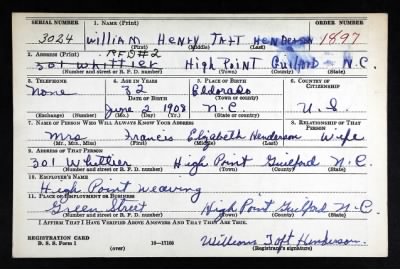 SERIAL NUMBER 1. NAME (Print) ORDER NUMBER
3024 William Henry Taft Henderson 1897
(First) (Middle) (Last)
2. ADDRESS (Print) RFD#2
301 Whittier High Point Guilford N.C.
(Number and street or R. F. D. number) (Town) (County) (State)
3. TELEPHONE 4. AGE IN YEARS 5. PLACE OF BIRTH 6. COUNTRY OF CITIZENSHIP
None 32 Eldorado
DATE OF BIRTH (Town or county)
June 2 1908 N.C. U.S.
(Exchange) (Number) (Mo.) (Day) (Yr.) (State or country)
7. NAME OF PERSON WHO WILL ALWAYS KNOW YOUR ADDRESS 8. RELATIONSHIP OF THAT PERSON
Mrs Francis Elizabeth Henderson Wife
(Mr., Mrs., Miss) (First) (Middle) (Last)
9. ADDRESS OF THAT PERSON
301 Whittier High Point Guilford N.C.
(Number and street or R. F. D. number) (Town) (County) (State)
10. EMPLOYER'S NAME
High Point Weaving
11. PLACE OF EMPLOYMENT OR BUSINESS
Green Street High Point Guilford N.C.
(Number and street or R. F. D. number) (Town) (County) (State)
I AFFIRM THAT I HAVE VERIFIED ABOVE ANSWERS AND THAT THEY ARE TRUE.
REGISTRATION CARD
D. S. S. Form 1 (over) 16—17105 William Taft Henderson
(Registrant's signature)